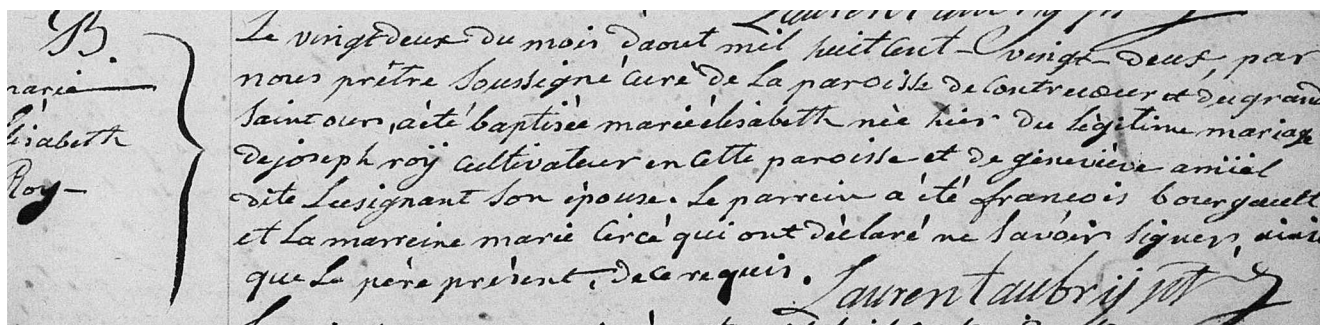 B.
marie
Elisabeth
Roy
Le vingt deux du mois daout mil huit Cent vingt deux par
nous prêtre Soussigné Curé de La paroisse de Contrecoeur et du grand
Saint ours, a été baptisée marie élisabeth née hier du légitime mariage
de joseph roÿ Cultivateur en Cette paroisse et de geneviève amiël
dite Lusignant Son épouse. Le parrein a été francois bourgault
et La marreine marie Circé qui ont déclaré ne Savoir Signer, ainsi
que Le père présent, de ce requis.
Laurent aubry ptr